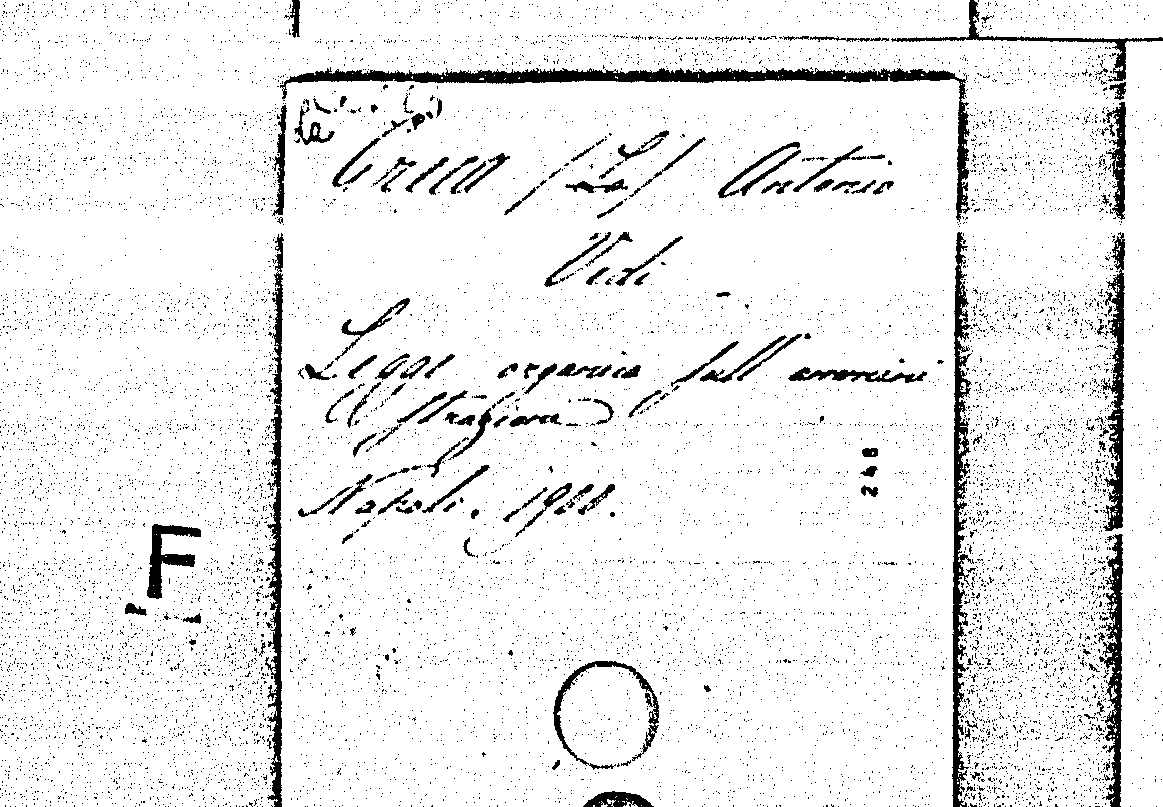 La
Greca /La/ Antonio
Vedi
Legge organica sull' ammini
strazione
Napoli. 1900.
248
F